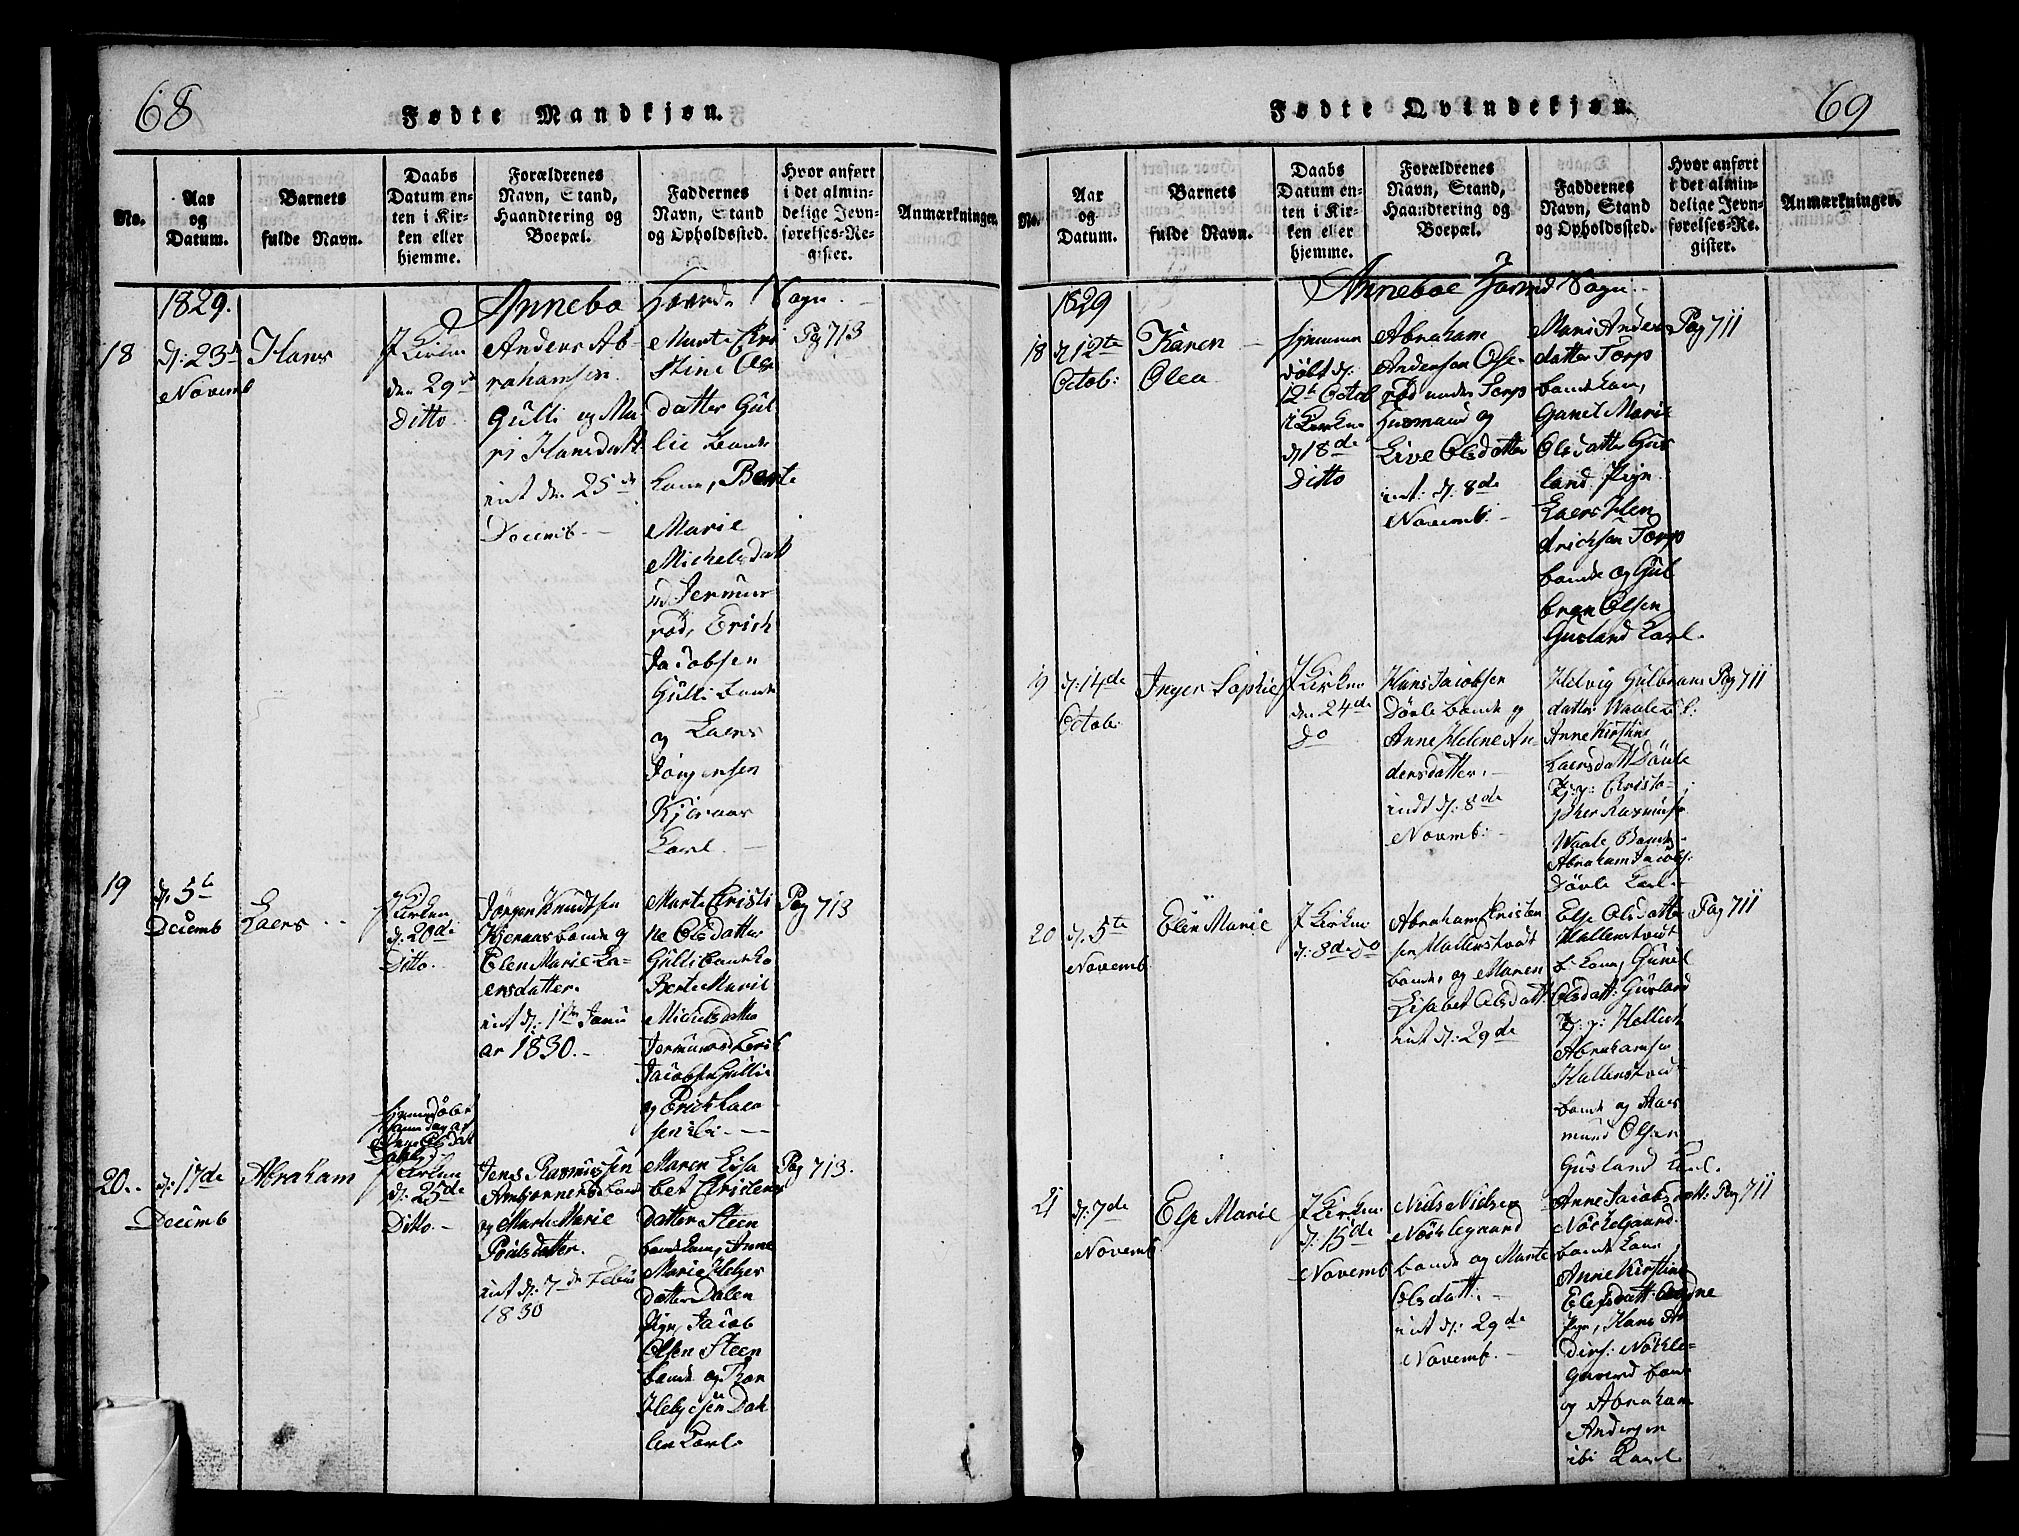 68
Fødte Mandkjøn.
No.
Aar
og
Datum.
Barnets
fulde Navn.
Daabs
Datum en-
ten i Kir-
ken eller
hjemme.
Forældrenes
Navn, Stand,
Haandtering og
Boepæl.
Faddernes
Navn, Stand
og Opholdssted.
Hvor anført
i det almin-
delige Jevn-
førelses-Re-
gister.
Anmærkninger.
1829.
Annebo Sogn
18
d: 23de
Novemb
Hans
I Kirken
den 29de
Ditto
Anders Ab-
rahamsen
Gulli og Ma-
ri Hansdatt
int den 25de
Decemb.
Marte Chri
stine Ols
datter Gul
lie bonde
kone, Berte
Marie
Michelsdatt
Jermund-
rød, Erich
Jacobsen
Gulli bonde
og Laers
Jørgensen
Kjernaas
Karl.
Pag 713
19
d: 5te
Decemb
Laers
I Kirken
d: 20de
Ditto.
Jørgen Knudsen
Kjernaas bonde og
Elen Marie La-
ersdatter.
int d: 1te Janu
ar 1830.
Marte Christi
ne Olsdatter
Gulli bondeko
Berte Marie
Michelsdatter
Jermundrød Erik
Jacobsen Gullie
og Erick Laer
sen ibi
Pag 713
20.
d: 17de
Decemb
Abraham
hjemmedøbt
I Kirken
d: 25de
Ditto
Jens Rasmussen
Ambjørnerød bond
og Marte Marie
Poulsdatter.
int d: 7de Febru
1830
Maren Lisa
bet Christens
datter Steen
bondekone, Anne
Marie Helges
datter Dalen
Pige, Jacob
Olsen Steen
bonde og Thor
Helgesen Dah
len Karl.
Pag 713.
69
Fødte Qvindekjøn.
No.
Aar
og
Datum.
Barnets
fulde Navn.
Daabs
Datum en-
ten i Kir-
ken eller
hjemme.
Forældrenes
Navn, Stand,
Haandtering og
Boepæl.
Faddernes
Navn, Stand
og Opholdssted.
Hvor anført
i det almin-
delige Jevn-
førelses-Re-
gister.
Anmærkninger.
1829
Anneboe Sogn
18
d 12te
Octob:
Karen
Olea
hjemme
døbt d:
12te Octob
i Kirken
d 18de
Ditto
Abraham
Andersen Olse-
rød under Torp
Husmand og
Live Olsdatter
int: d: 8de
Novemb:
Mari Anders
datter Torp
bondekone,
Gunil Marie
Olsdatter Gus
land Pige
Laers Hen
drichsen Torp
bonde og Gul
bran Olsen
Gusland Karl.
Pag 711
19
d: 14de
Octob:
Inger Sophie
I Kirken
den 24de
Do
Hans Jacobsen
Døvle bonde og
Anne Helene An-
dersdatter.
indt d: 8de
Novemb:
Helvig Gulbrans
datter Waale
Anne Kirstine
Laersdatt Døvle
Christo-
pher Rasmuss
Waale Bonde
Abraham Jacobs:
Døvle Karl
Pag 711
20
d: 5te
Novemb
Elen Marie
I Kirken
d: 8de do
Abraham Christen
sen Hallenstvedt
bonde og Maren
Lisabet Olsdatt
int d: 29de
Else Olsdatter
Hallenstvedt
b: Kone, Gunil
Olsdatt: Gusland
Abrahamsen
Hallenstvedt
bonde og Aas
mund Olsen
Gusland Karl.
Pag 711
21
d: 7de
Novemb
Else Marie
I Kirken
d: 15de
Novemb
Niels Nielsen
Nøklegaard
bonde og Marte
Olsdatt:
int d: 29de
Novemb.
Anne Jacobsdatt:
Nøklegaard
bonde Kone
Anne Kirstine
Elefsdatt:
Pige, Hans An
ders: Nøkle-
gaard bonde
og Abraham
Andersen
ibi Karl
Pag 711